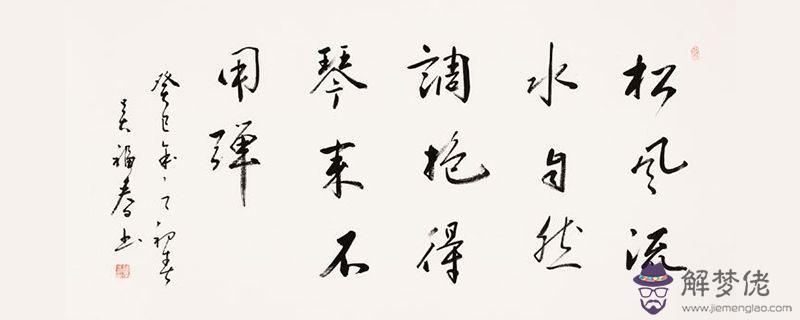 松風流
水自然
調抱得
琴来不
用彈
癸巳年之初春
吴福春书
解梦佬
www.jiemenglao.com